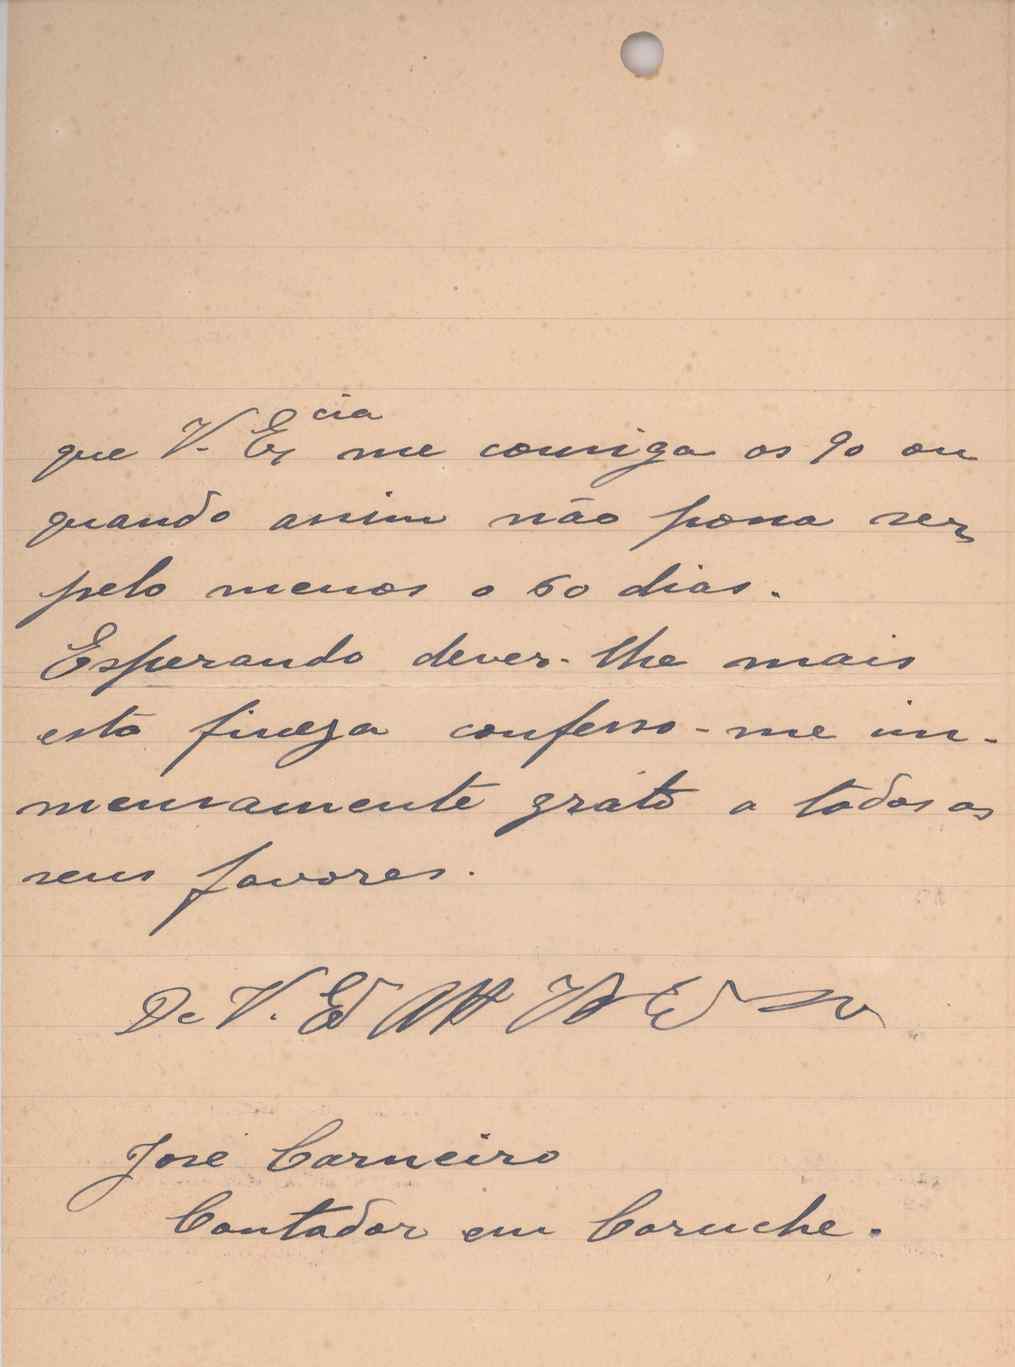 que V. Ex.cia me consiga os 90 ou
quando assim não possa ser,
pelo menos o 60 dias.
Esperando dever-lhe mais
esta fineza confesso-me im-
mensamente grato a todos os
seus favores.
De V. Ex
José Carneiro
Contador em Coruche.